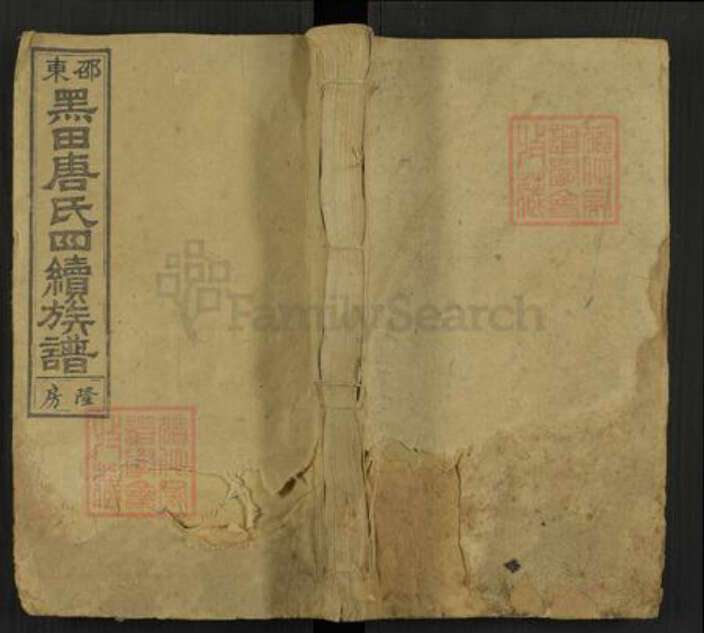 邵東
黑田唐氏四續族譜
隆房
FamilySearch